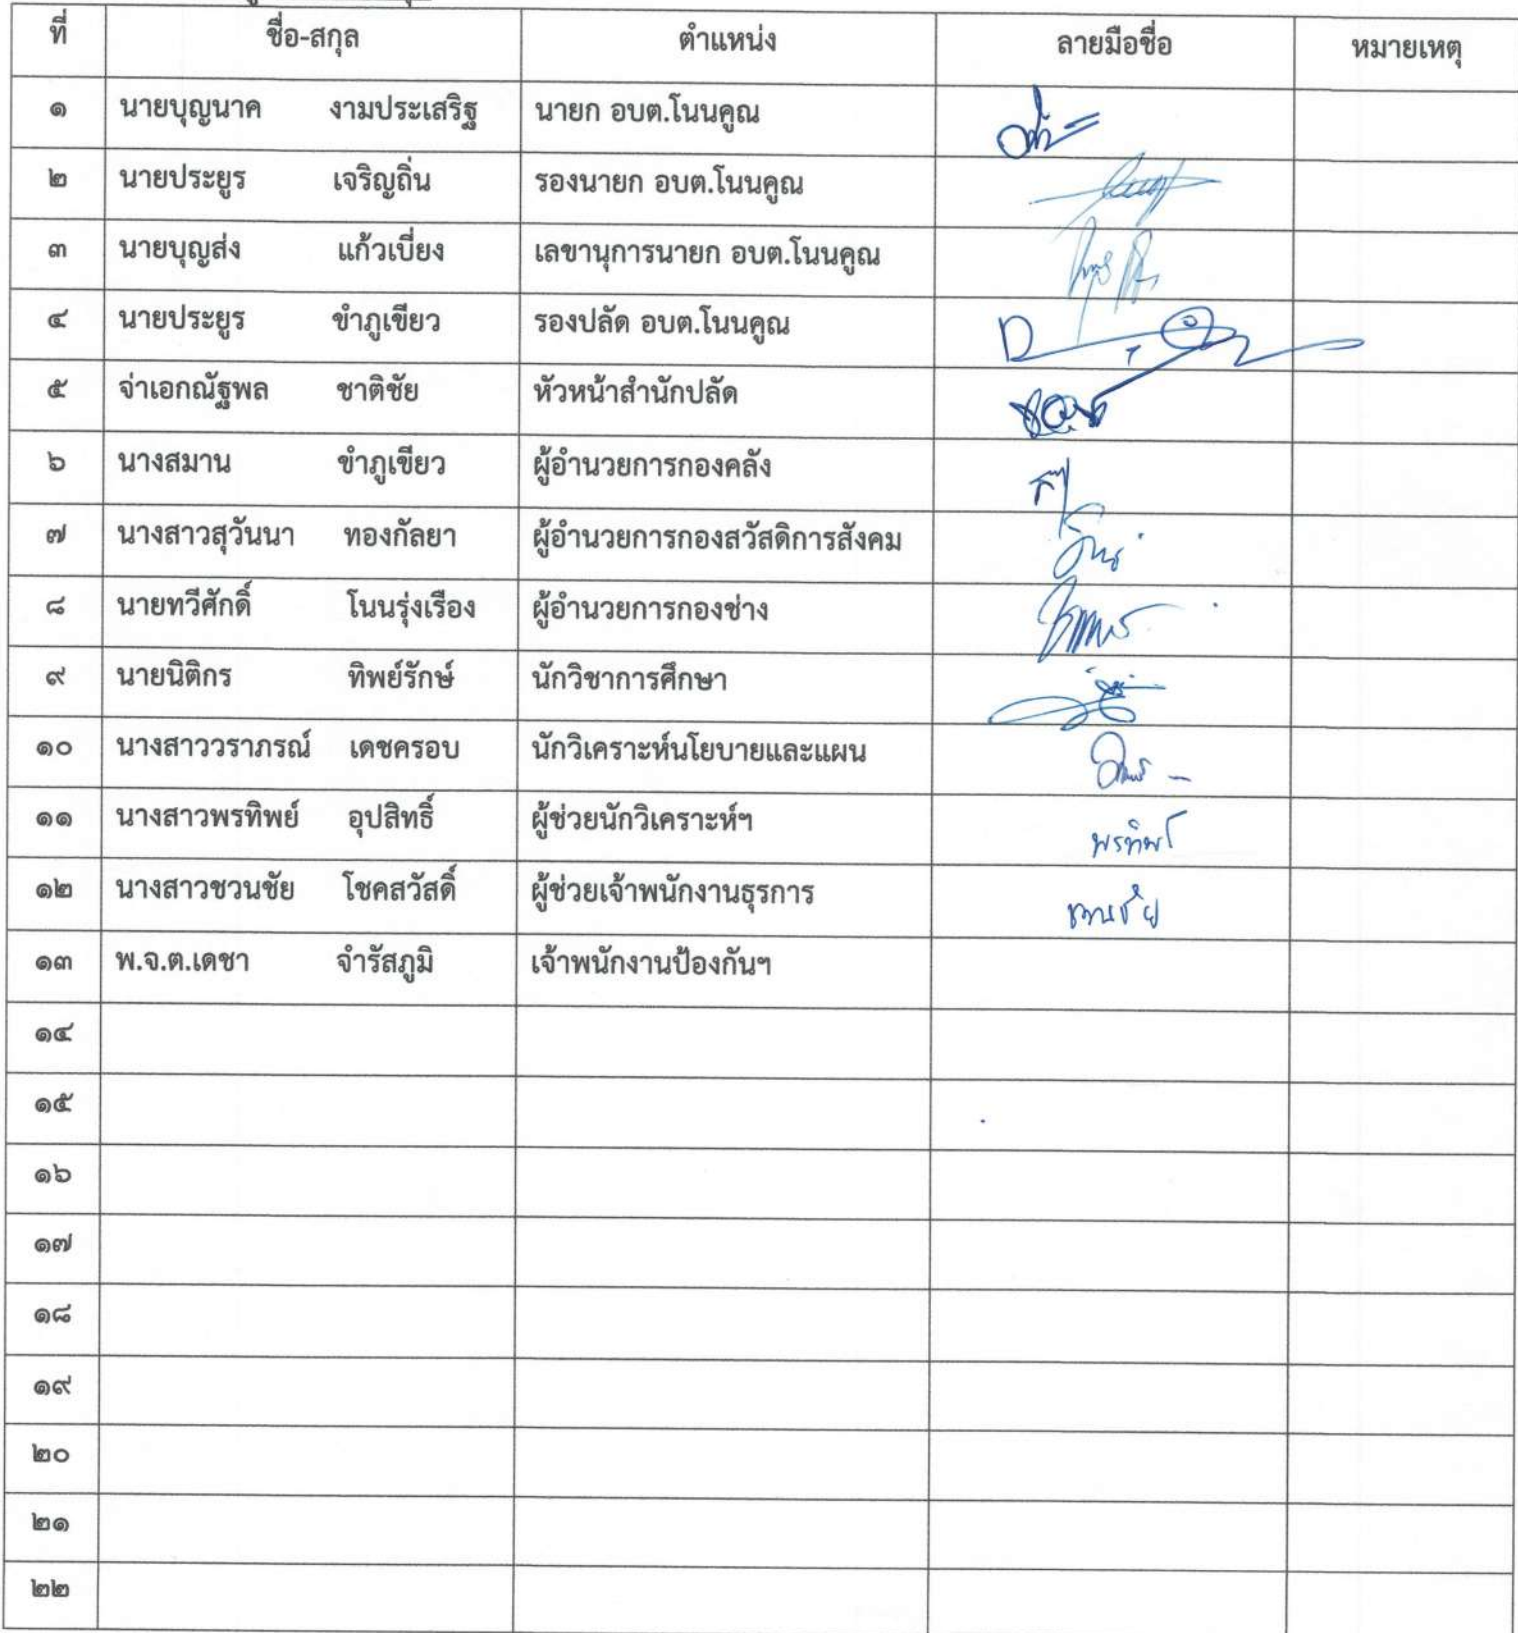 ที่ ชื่อ-สกุล ตำแหน่ง ลายมือชื่อ หมายเหตุ
๑ นายบุญนาค งามประเสริฐ นายก อบต.โนนคูณ
๒ นายประยูร เจริญถิ่น รองนายก อบต.โนนคูณ
๓ นายบุญส่ง แก้วเบี่ยง เลขานุการนายก อบต.โนนคูณ
๔ นายประยูร ขำภูเขียว รองปลัด อบต.โนนคูณ
๕ จ่าเอกณัฐพล ชาติชัย หัวหน้าสำนักปลัด
๖ นางสมาน ขำภูเขียว ผู้อำนวยการกองคลัง
๗ นางสาวสุวันนา ทองกัลยา ผู้อำนวยการกองสวัสดิการสังคม
๘ นายทวีศักดิ์ โนนรุ่งเรือง ผู้อำนวยการกองช่าง
๙ นายนิติกร ทิพย์รักษ์ นักวิชาการศึกษา
๑๐ นางสาววราภรณ์ เดชครอบ นักวิเคราะห์นโยบายและแผน
๑๑ นางสาวพรทิพย์ อุปสิทธิ์ ผู้ช่วยนักวิเคราะห์ฯ พรทิพย์
๑๒ นางสาวชวนชัย โชคสวัสดิ์ ผู้ช่วยเจ้าพนักงานธุรการ ชวนชัย
๑๓ พ.จ.ต.เดชา จำรัสภูมิ เจ้าพนักงานป้องกันฯ
๑๔
๑๕
๑๖
๑๗
๑๘
๑๙
๒๐
๒๑
๒๒